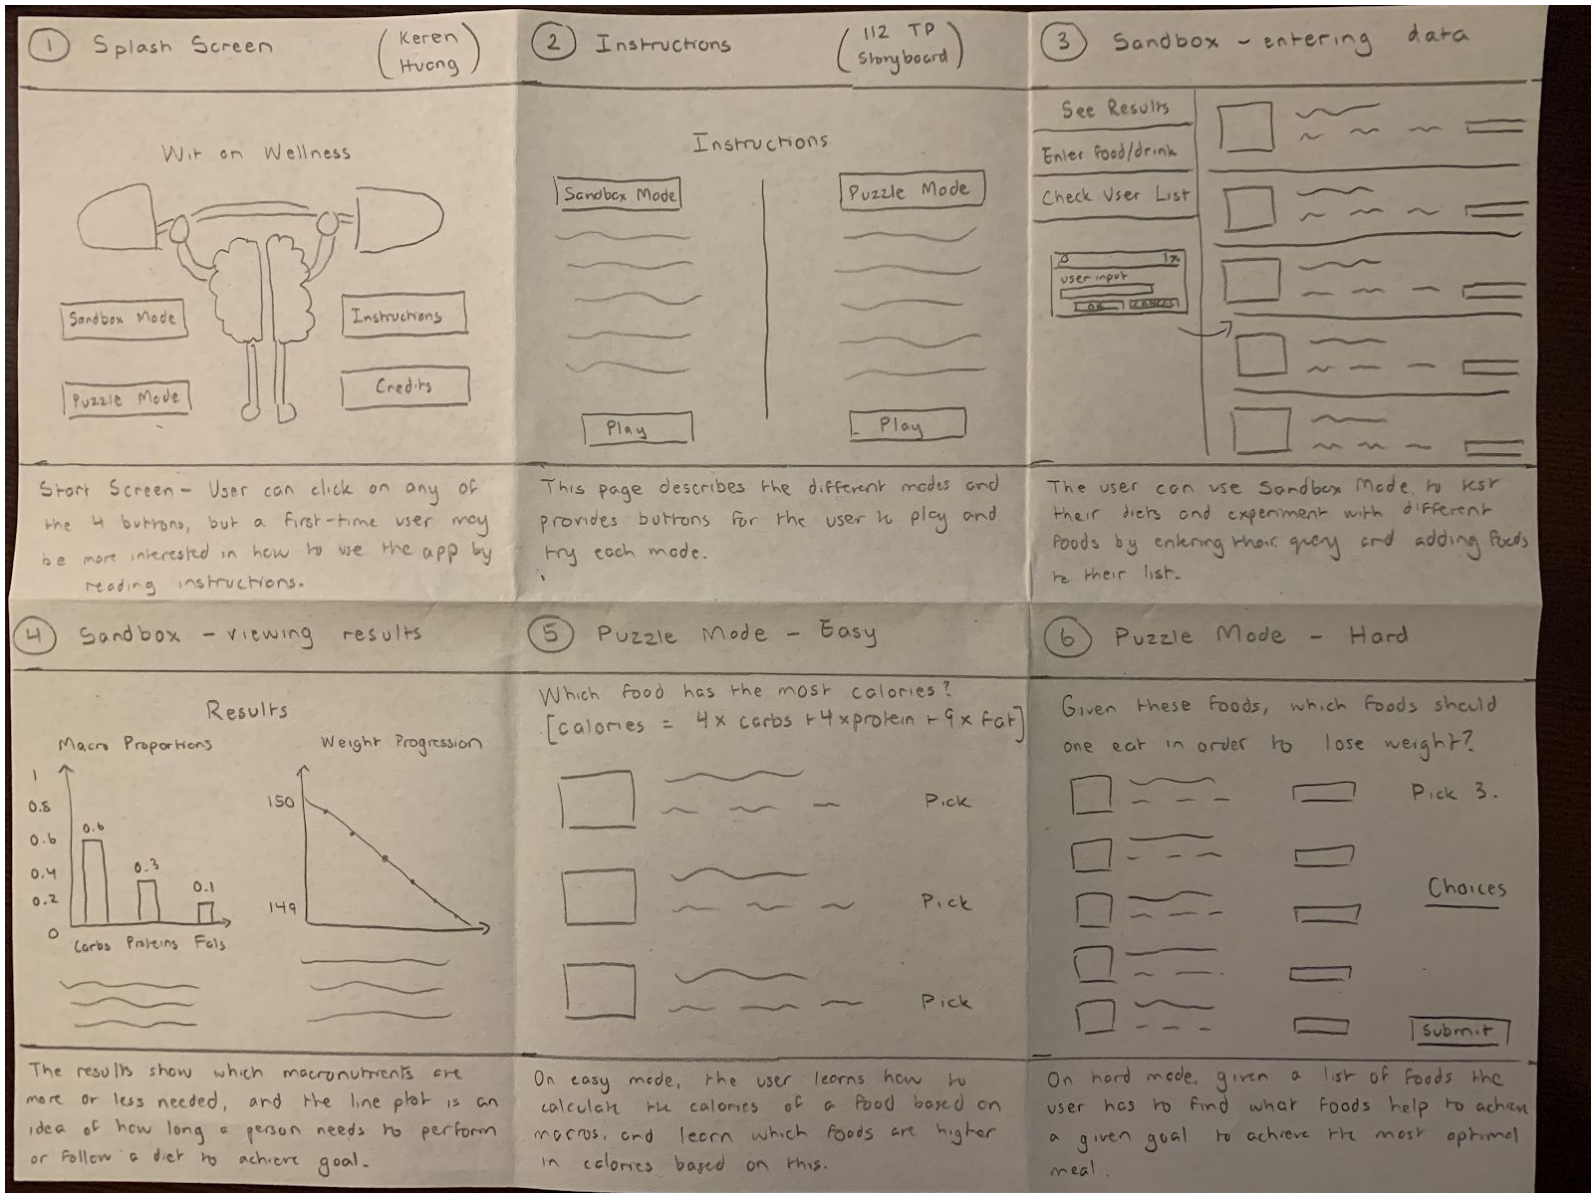 1 Splash Screen (Keren Huang)
Wit on Wellness
Sandbox Mode
Instructions
Puzzle Mode
Credits
Start Screen - User can click on any of
the 4 buttons, but a first-time user may
be more interested in how to use the app by
reading instructions.
2 Instructions (112 TP Storyboard)
Instructions
Sandbox Mode
Puzzle Mode
Play
Play
This page describes the different modes and
provides buttons for the user to play and
try each mode.
3 Sandbox - entering data
See Results
Enter food/drink
Check User List
user input
OK
The user can use Sandbox Mode to test
their diets and experiment with different
foods by entering their query and adding foods
to their list.
4 Sandbox - viewing results
Results
Macro Proportions
1
0.8
0.6
0.4
0.2
0
0.6
0.3
0.1
Carbs Proteins Fats
Weight Progression
150
149
The results show which macronutrients are
more or less needed, and the line plot is an
idea of how long a person needs to perform
or follow a diet to achieve goal.
5 Puzzle Mode - Easy
Which food has the most calories?
[calories = 4x carbs + 4x protein + 9x fat]
Pick
Pick
Pick
On easy mode, the user learns how to
calculate the calories of a food based on
macros, and learn which foods are higher
in calories based on this.
6 Puzzle Mode - Hard
Given these foods, which foods should
one eat in order to lose weight?
Pick 3.
Choices
Submit
On hard mode, given a list of foods the
user has to find what foods help to achieve
a given goal to achieve the most optimal
meal.